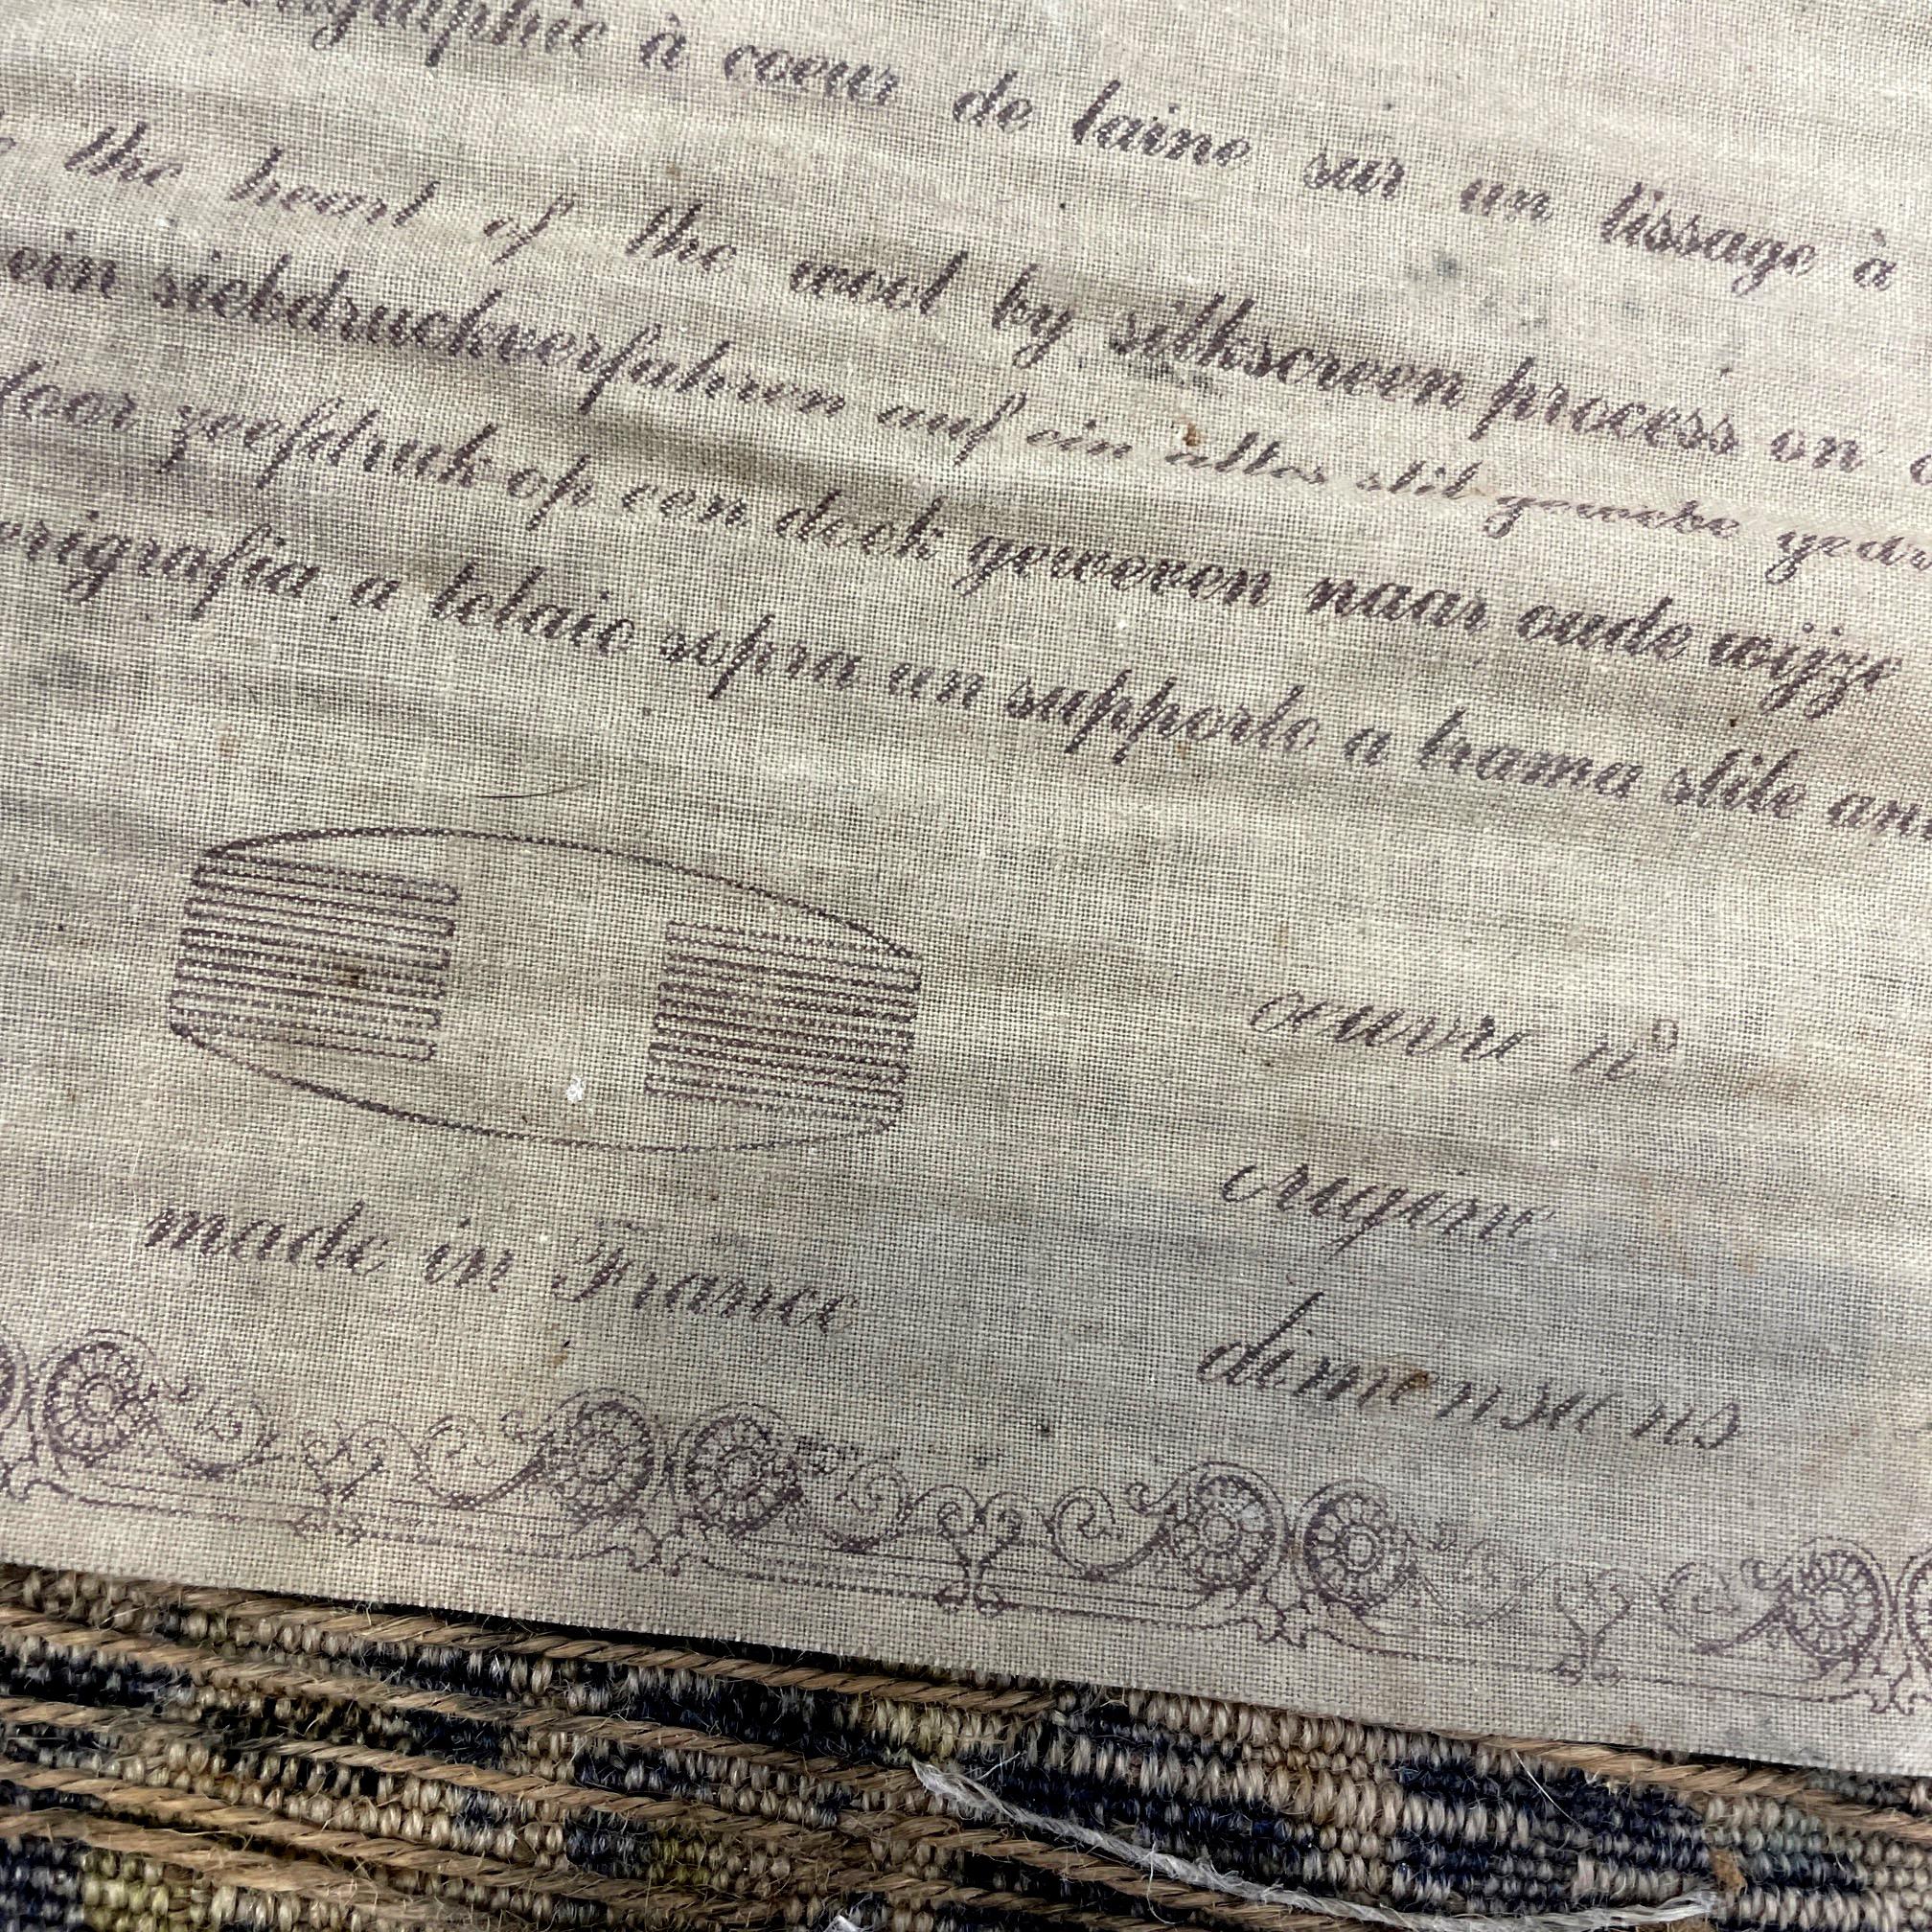 à coeur de laine sur un tissage à
the heart of the wool by silkscreen process on
ein siebdruckverfahren auf ein altes stil gewebe
door zeefdruk op een doek geweven naar oude wijze
a telaio sopra un supporto a trama stile
oeuvre n°
origine
made in France
dimensions